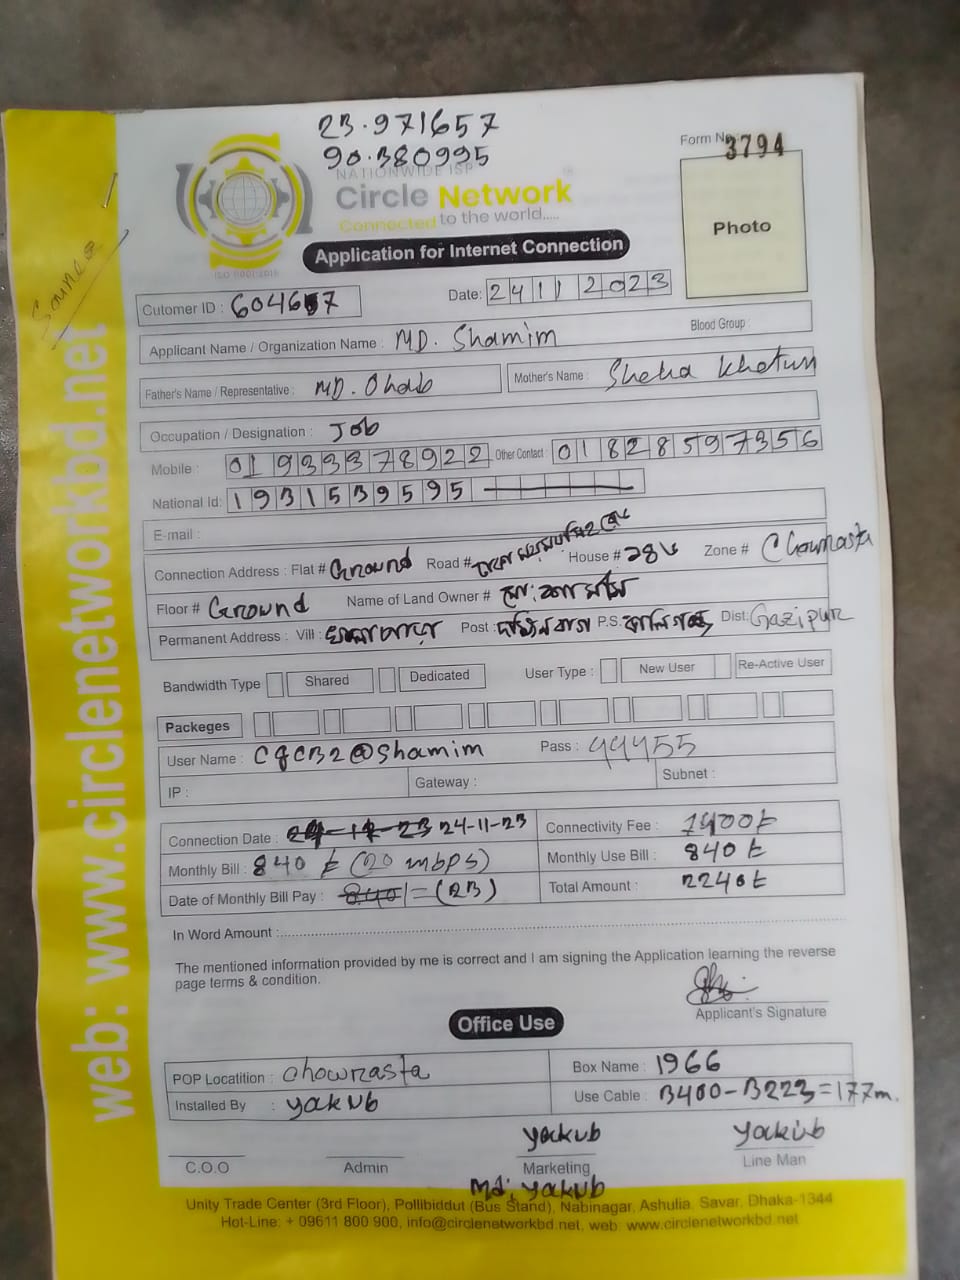 23.971657
90.380995
Form No: 3794
NATIONWIDE ISP
Circle Network
Connected to the world.....
ISO 9001:2015
Photo
Application for Internet Connection
Cutomer ID : 604667
Date: 24 11 2023
Blood Group :
Applicant Name / Organization Name : MD. Shamim
Father's Name / Representative : MD. Ohab
Mother's Name : Sheha Khatun
Occupation / Designation : Job
Mobile : 01933378922 Other Contact : 01828597356
National Id: 1931539595
E-mail :
Connection Address : Flat # Ground Road # House # 286 Zone # Chowrasta
Floor # Ground Name of Land Owner #
Permanent Address : Vill : Post : P.S. Dist: Gazipur
Bandwidth Type Shared Dedicated User Type : New User Re-Active User
Packeges
User Name : CgCB2@Shamim Pass : 99455
IP : Gateway : Subnet :
Connection Date : 24-11-23 Connectivity Fee : 1400৳
Monthly Bill : 840 ৳ (20 mbps) Monthly Use Bill : 840 ৳
Date of Monthly Bill Pay : 840/= (23) Total Amount : 2240৳
In Word Amount :
The mentioned information provided by me is correct and I am signing the Application learning the reverse
page terms & condition.
Applicant's Signature
Office Use
POP Locatition : chowrasta Box Name : 1966
Installed By : yakub Use Cable : B400-B223=177m.
yakub yakub
C.O.O Admin Marketing Line Man
Md: yakub
Unity Trade Center (3rd Floor), Pollibiddut (Bus Stand), Nabinagar, Ashulia, Savar, Dhaka-1344
Hot-Line: + 09611 800 900, info@circlenetworkbd.net, web: www.circlenetworkbd.net
web: www.circlenetworkbd.net